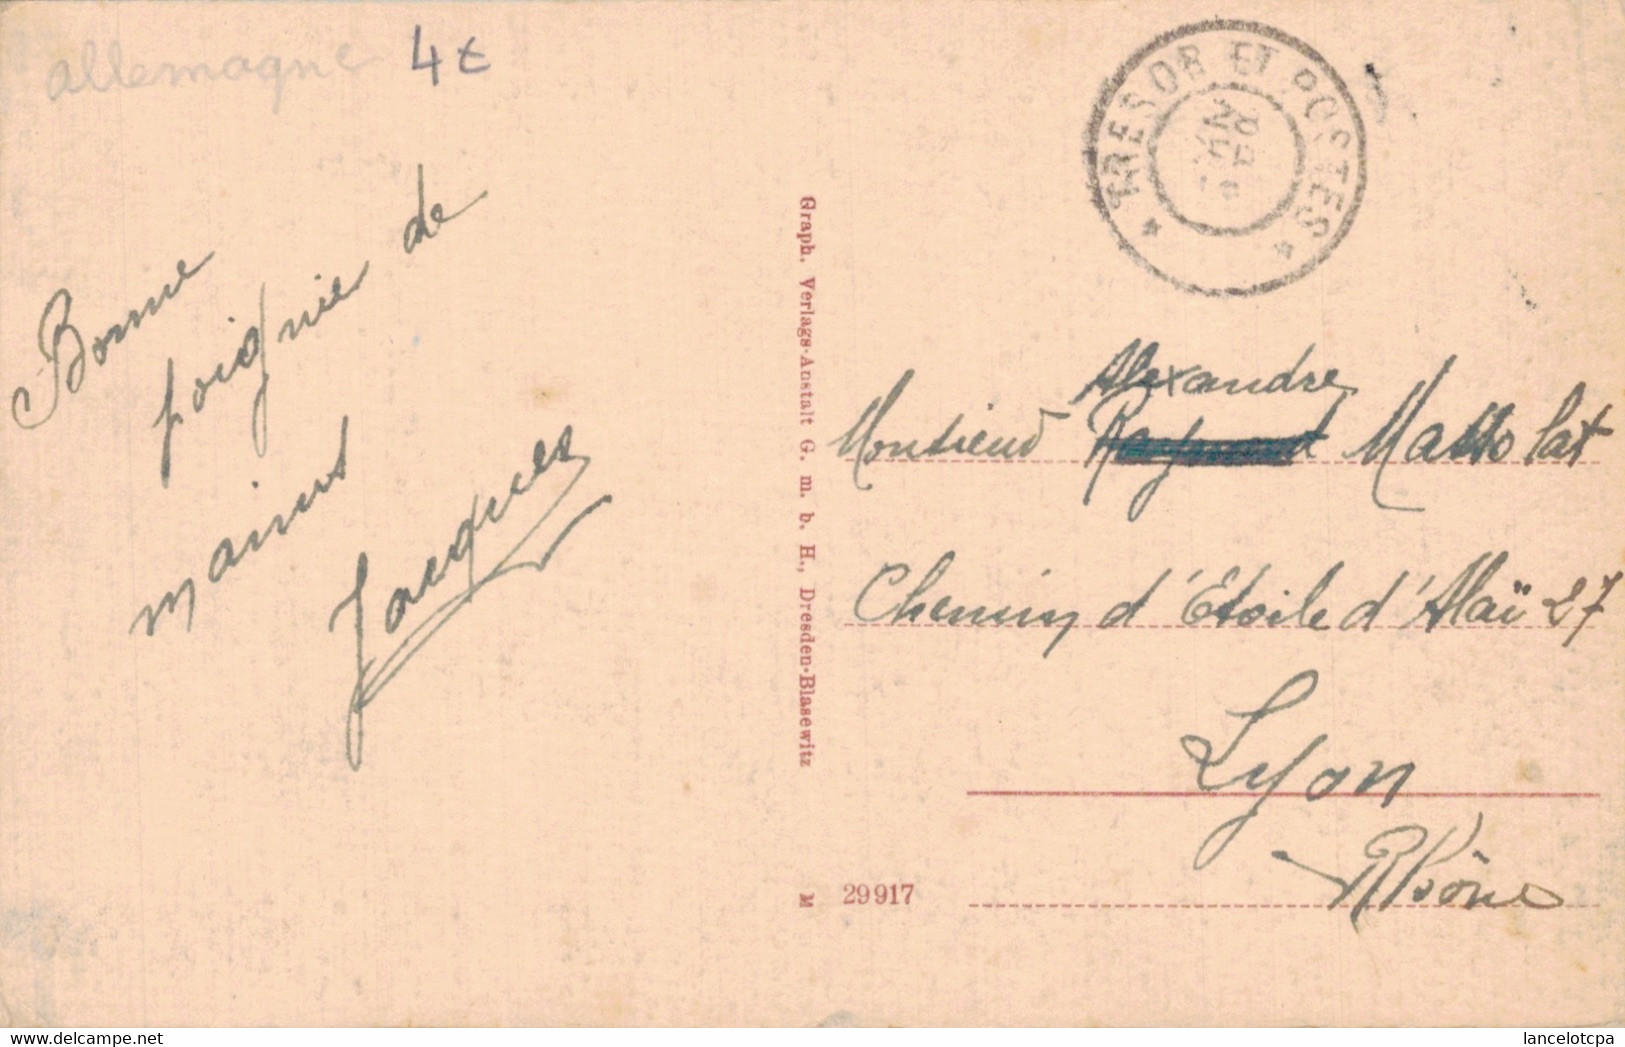 allemagne 4€
TRESOR ET POSTES
Bonne
poignée de
mains
Jacques
Graph. Verlags-Anstalt G. m. b. H., Dresden-Blasewitz
M 29917
Alexandre
Monsieur Raymond Mattolat
Chemin d'Etoile d'Alaï 27
Lyon
Rhône
www.delcampe.net
lancelotcpa